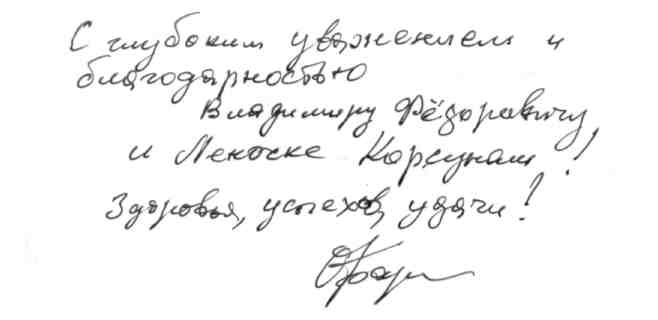 С глубоким уважением и
благодарностью
Владимиру Фёдоровичу
и Леночке Корсунам!
Здоровья, успехов, удачи!